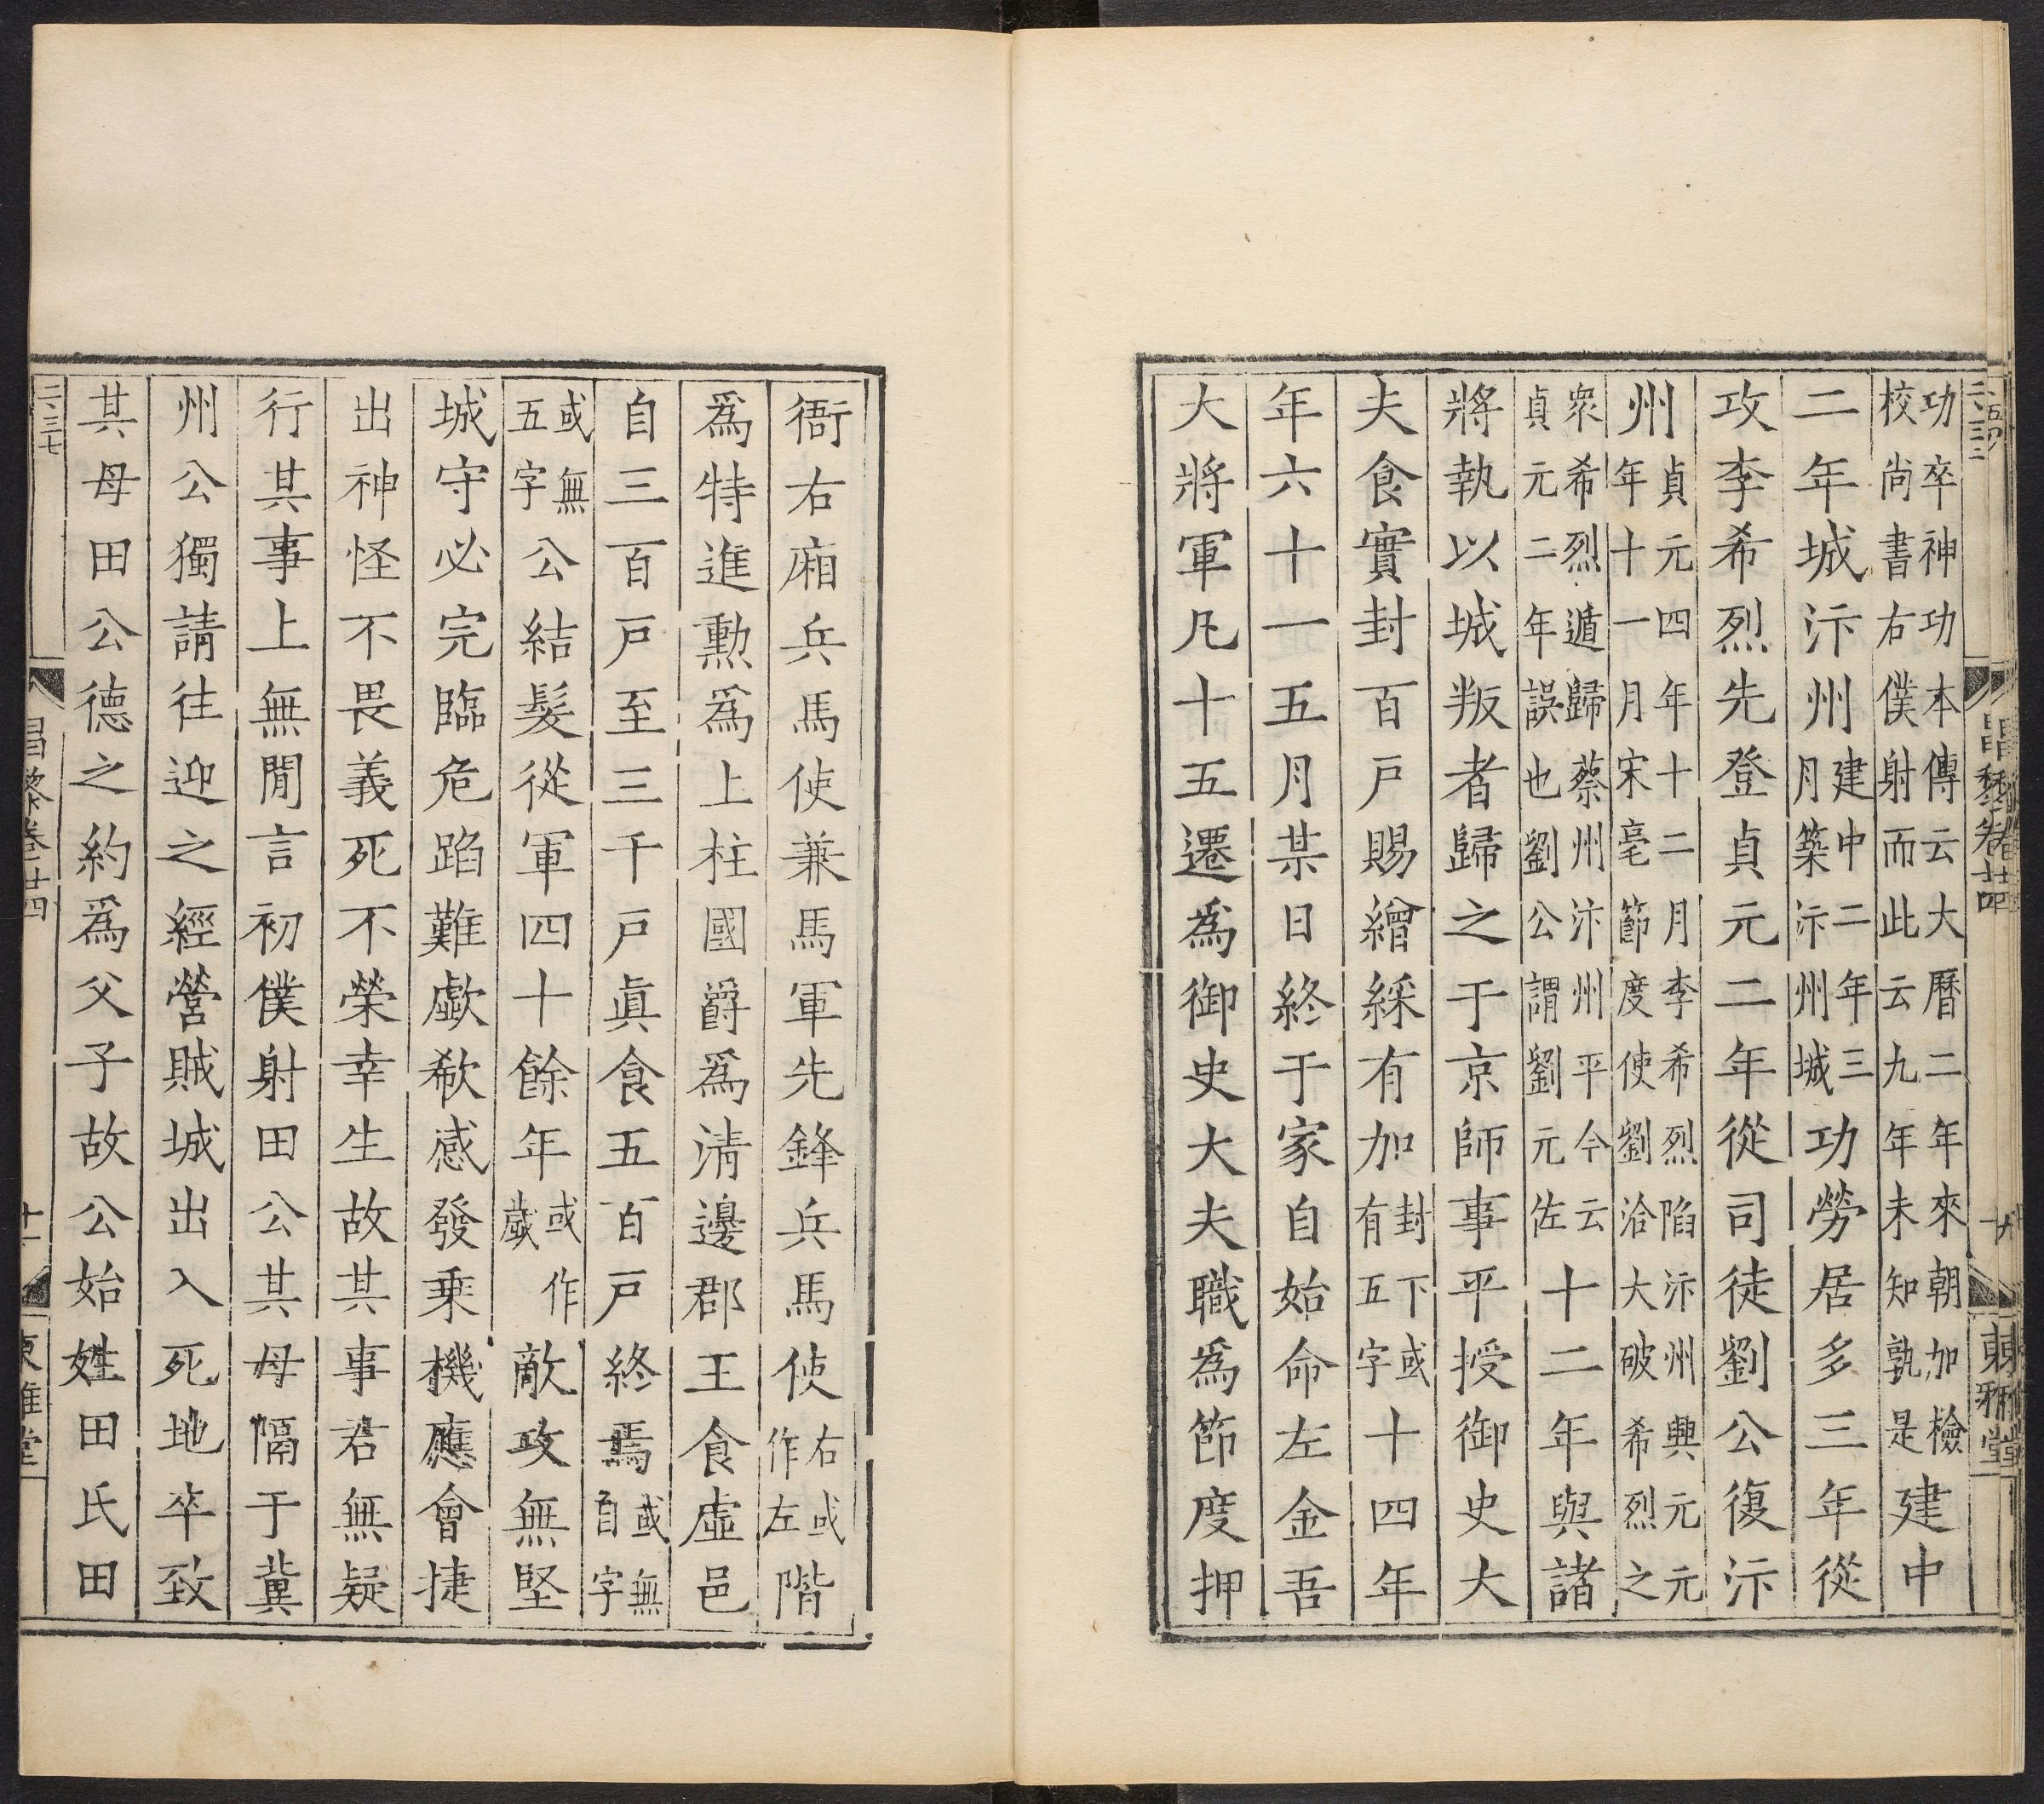 功卒神功本傳云大曆二年來朝加檢校尚書右僕射而此云九年未知孰是建中
二年城汴州建中二年三月築汴州城功勞居多三年從
攻李希烈先登貞元二年從司徒劉公復汴
州貞元四年十二月李希烈陷汴州興元元年十一月宋亳節度使劉洽大破希烈之
眾希烈遁歸蔡州汴州平今云貞元二年誤也劉公謂劉元佐十二年與諸
將執以城叛者歸之于京師事平授御史大
夫食實封百戶賜繒綵有加封下或有五字十四年
年六十一五月某日終于家自始命左金吾
大將軍凡十五遷爲御史大夫職爲節度押
昌黎卷廿四
東雅堂
衙右廂兵馬使兼馬軍先鋒兵馬使右或作左階
爲特進勳爲上柱國爵爲清邊郡王食虛邑
自三百戶至三千戶眞食五百戶終焉或無自字
或無五字公結髮從軍四十餘年或作歲敵攻無堅
城守必完臨危蹈難歔欷感發乘機應會捷
出神怪不畏義死不榮幸生故其事君無疑
行其事上無閒言初僕射田公其母隔于冀
州公獨請往迎之經營賊城出入死地卒致
其母田公德之約爲父子故公始姓田氏田
二三七
昌黎卷廿四
十一
東雅堂